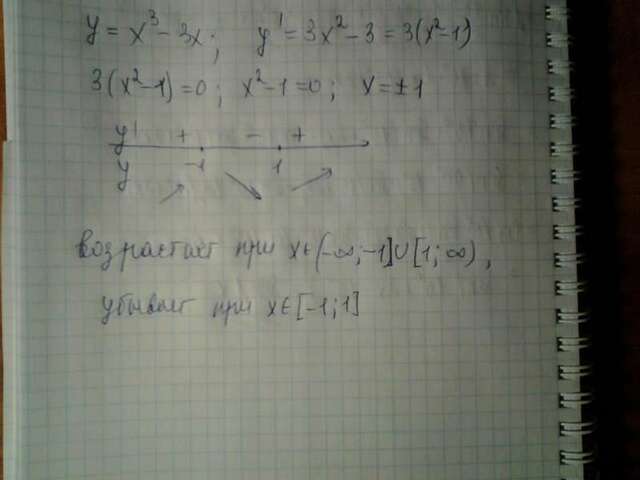 y = x³ - 3x; y' = 3x² - 3 = 3(x² - 1)
3(x² - 1) = 0; x² - 1 = 0; x = ±1
y' + - +
y -1 1
возрастает при x∈(-∞; -1]∪[1; ∞),
убывает при x∈[-1; 1]